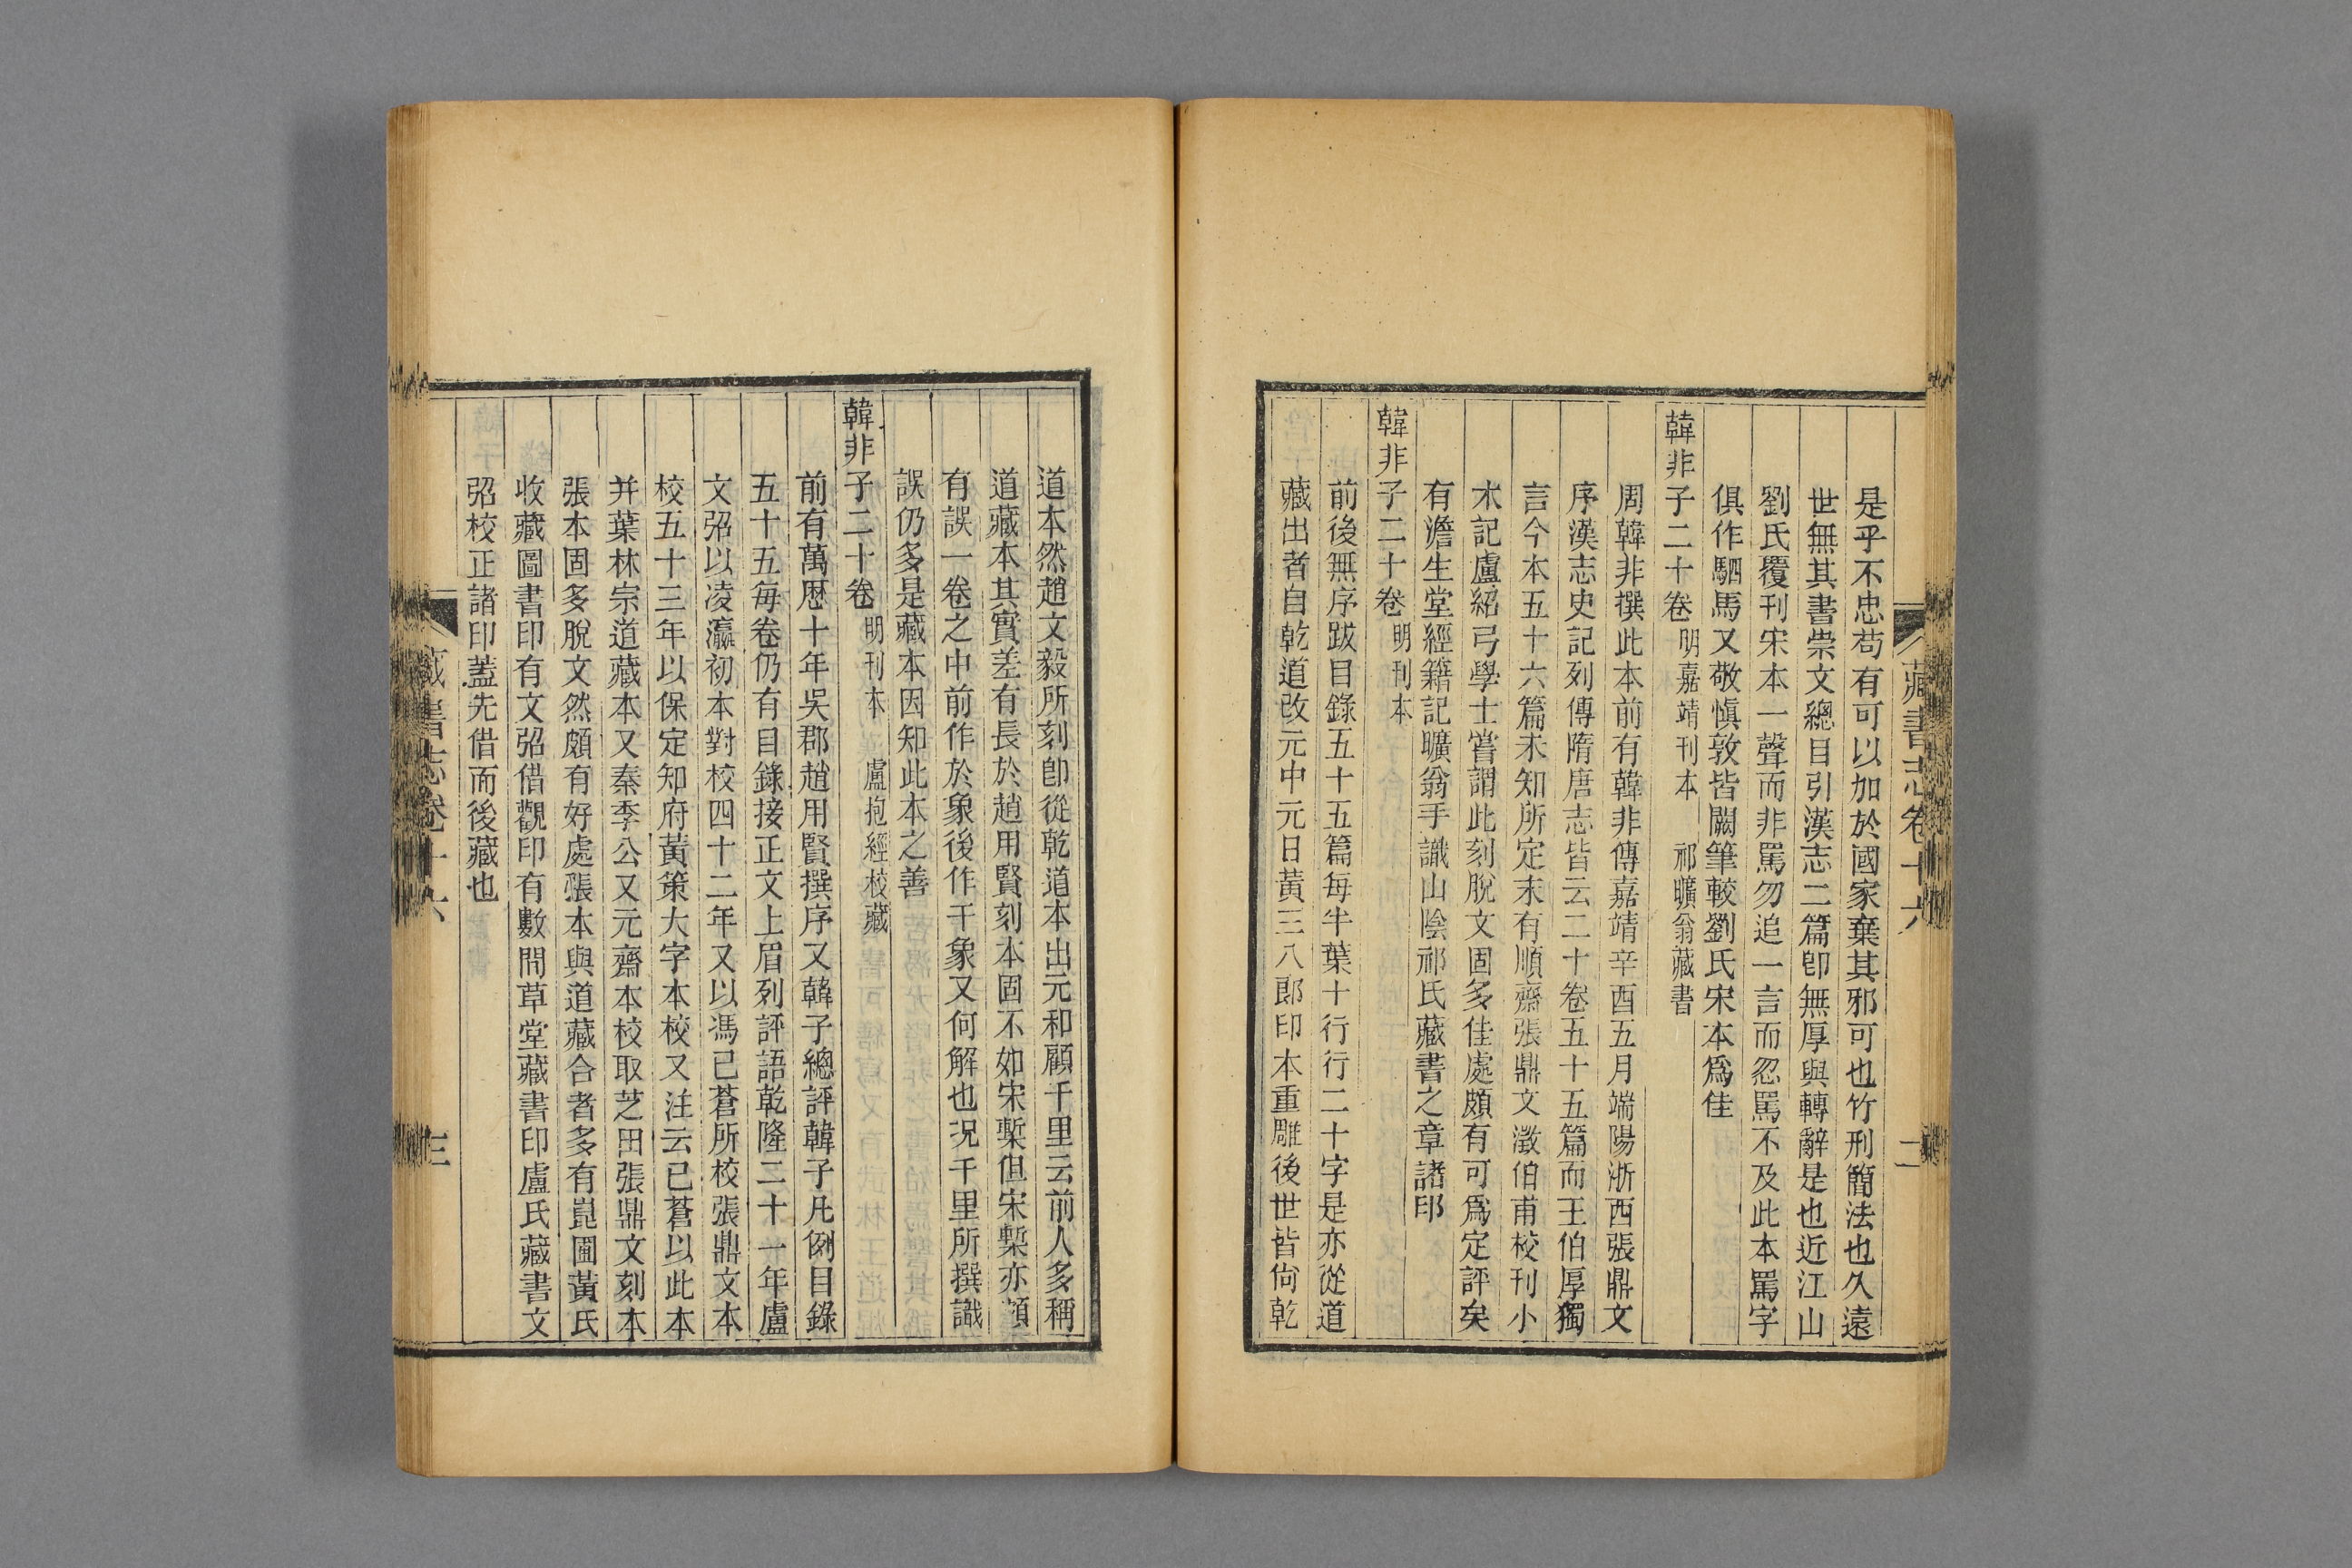 藏書志卷十六
二
是乎不忠苟有可以加於國家棄其邪可也竹刑簡法也久遠
世無其書崇文總目引漢志二篇卽無厚與轉辭是也近江山
劉氏覆刊宋本一聲而非罵勿追一言而忽罵不及此本罵字
俱作駟馬又敬愼敦皆闕筆較劉氏宋本爲佳
韓非子二十卷 明嘉靖刊本 祁曠翁藏書
周韓非撰此本前有韓非傳嘉靖辛酉五月端陽浙西張鼎文
序漢志史記列傳隋唐志皆云二十卷五十五篇而王伯厚獨
言今本五十六篇未知所定末有順齋張鼎文澂伯甫校刊小
木記盧紹弓學士嘗謂此刻脫文固多佳處頗有可爲定評矣
有澹生堂經籍記曠翁手識山陰祁氏藏書之章諸印
韓非子二十卷 明刊本
前後無序跋目錄五十五篇每半葉十行行二十字是亦從道
藏出者自乾道改元中元日黃三八郎印本重雕後世皆尙乾
道本然趙文毅所刻卽從乾道本出元和顧千里云前人多稱
道藏本其實差有長於趙用賢刻本固不如宋槧但宋槧亦頗
有誤一卷之中前作於象後作干象又何解也況千里所撰識
誤仍多是藏本因知此本之善
韓非子二十卷 明刊本 盧抱經校藏
前有萬曆十年吳郡趙用賢撰序又韓子總評韓子凡例目錄
五十五每卷仍有目錄接正文上眉列評語乾隆二十一年盧
文弨以凌瀛初本對校四十二年又以馮己蒼所校張鼎文本
校五十三年以保定知府黃策大字本校又注云己蒼以此本
幷葉林宗道藏本又秦季公又元齋本校取芝田張鼎文刻本
張本固多脫文然頗有好處張本與道藏合者多有崑圃黃氏
收藏圖書印有文弨借觀印有數間草堂藏書印盧氏藏書文
弨校正諸印蓋先借而後藏也
藏書志卷十六
三